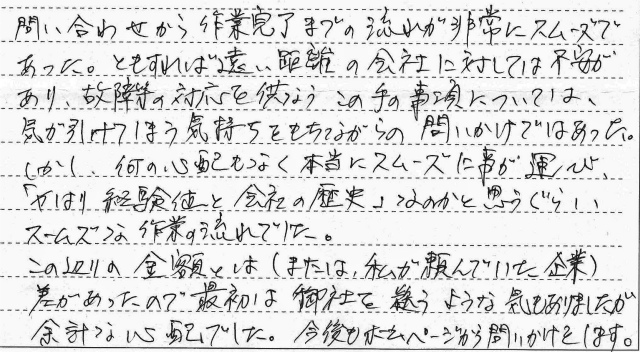 問い合わせから作業完了までの流れが非常にスムーズで
あった。ともすれば遠い距離の会社に対しては不安が
あり、故障等の対応を伴なうこの手の事項については、
気が引けてしまう気持ちをもちながらの問いかけではあった。
しかし、何の心配もなく本当にスムーズに事が運び、
「やはり経験値と会社の歴史」なのかと思うぐらい
スームズな作業の流れでした。
この辺りの金額とは(または、私が頼んでいた企業)
差があったので最初は御社を疑うような気もありましたが
余計な心配でした。今後もホームページから問いかけをします。